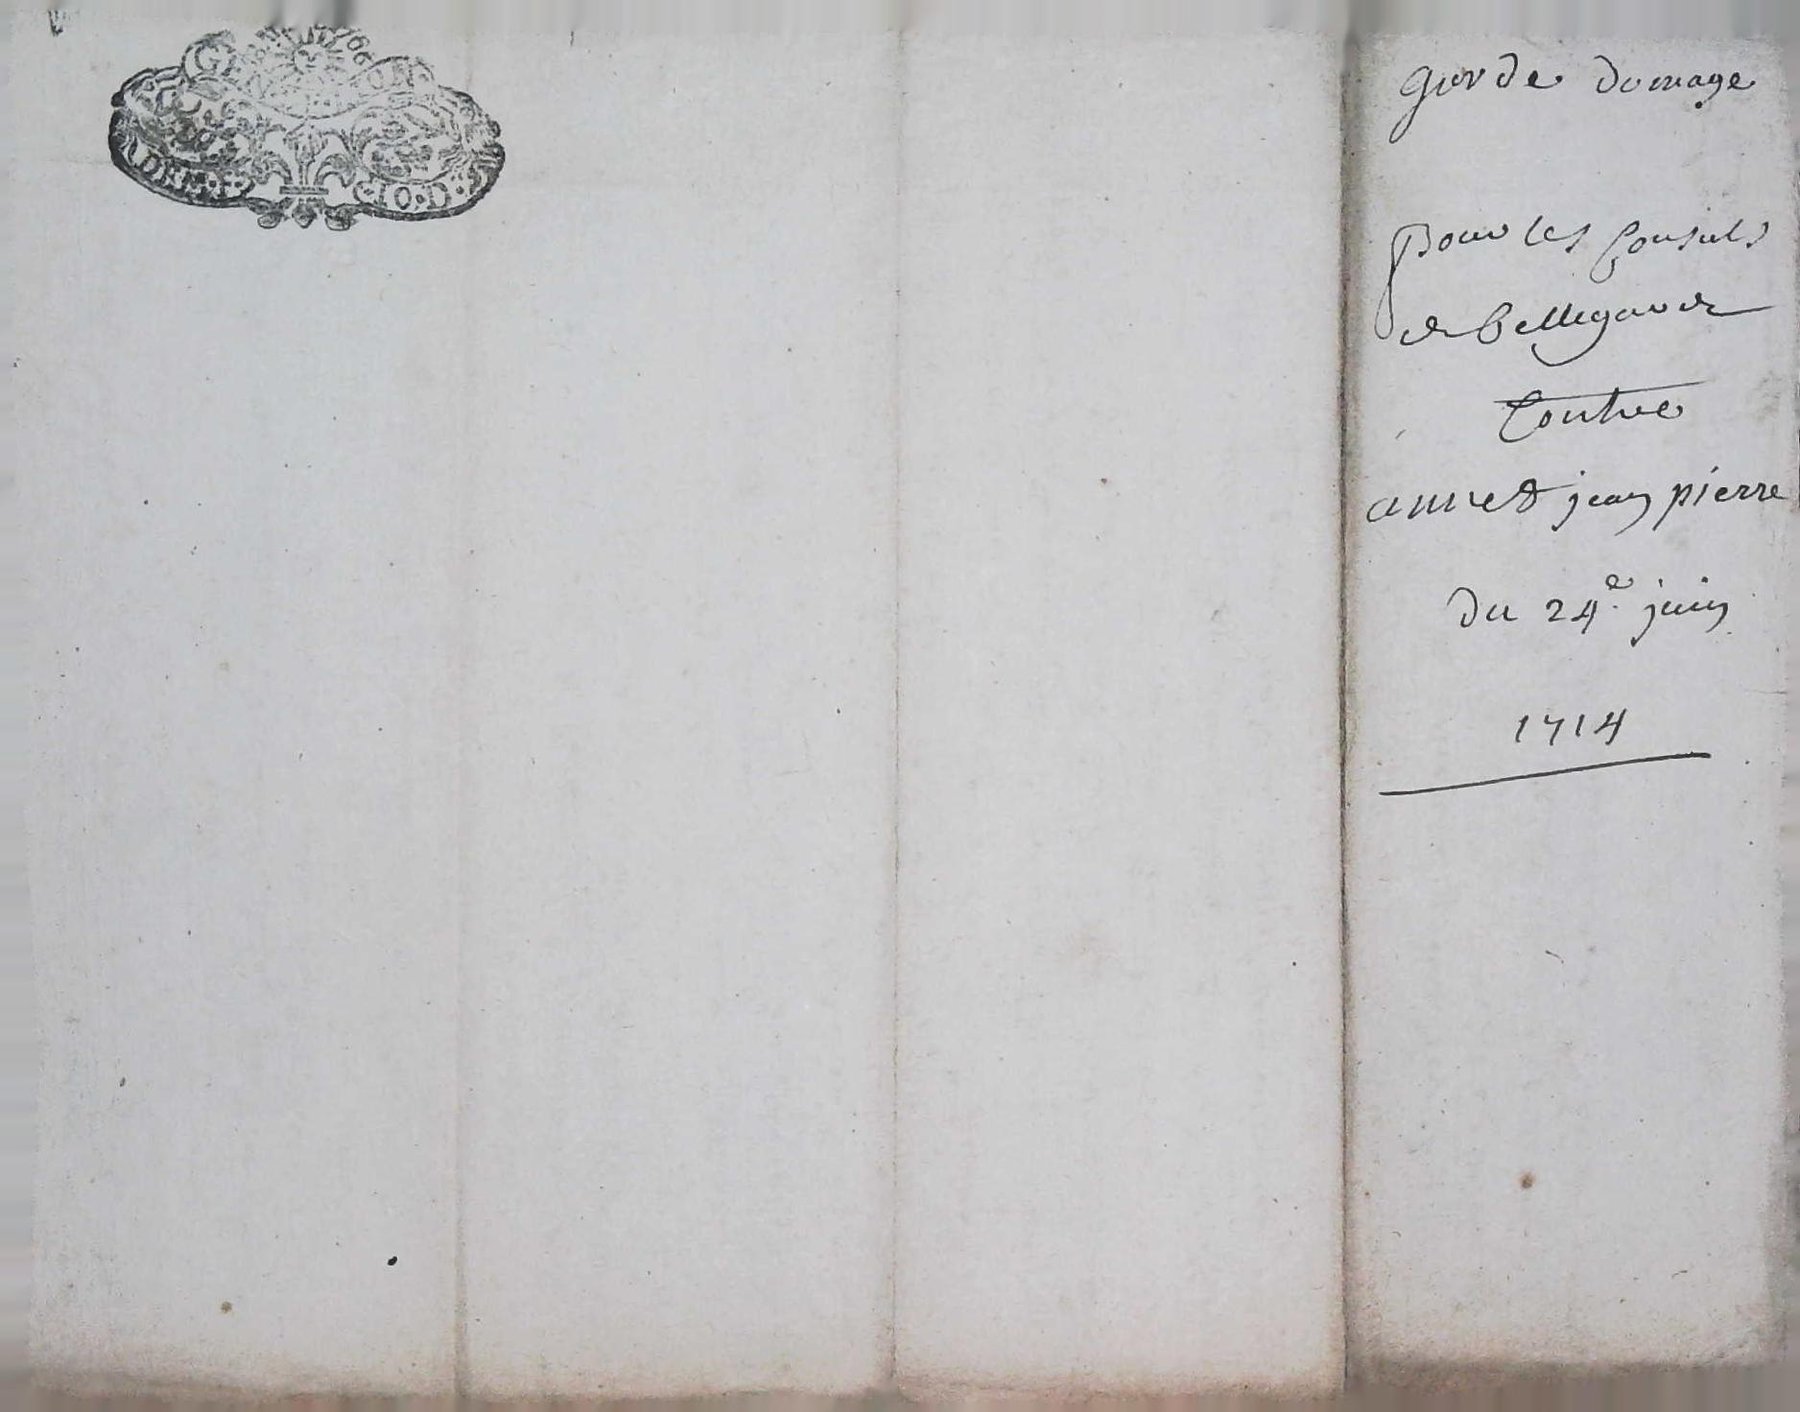 GEN
DES
IO·D
garde domage
pour les Consuls
de bellegarde
Contre
annet jean pierre
du 24e juin
1714